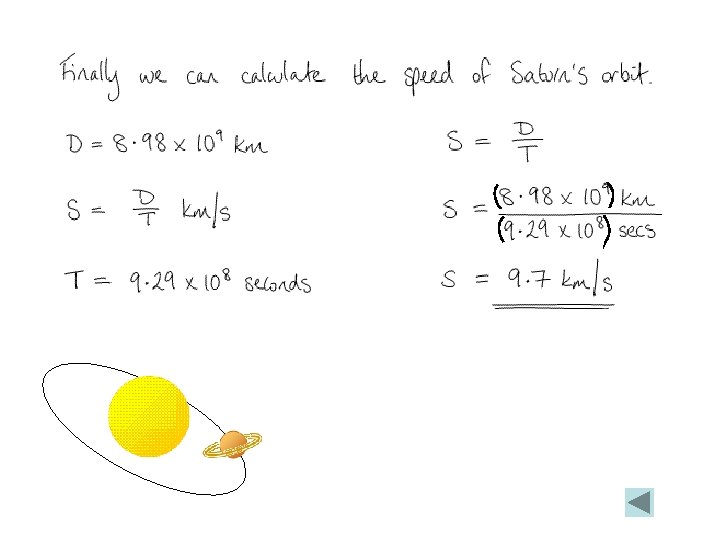 Finally we can calculate the speed of Saturn's orbit.
D = 8.98 x 10⁹ km
S = D/T km/s
T = 9.29 x 10⁸ seconds
S = D/T
S = (8.98 x 10⁹) km / (9.29 x 10⁸) secs
S = 9.7 km/s